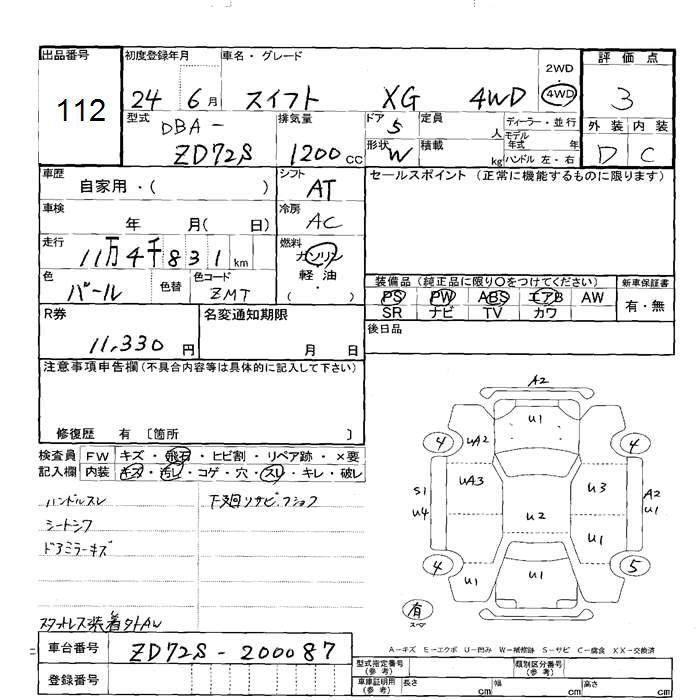 出品番号 初度登録年月 車名・グレード 2WD・4WD 評価点
112 24 6月 スイフト XG 4WD 3
型式 DBA-ZD72S 排気量 1200cc ドア 5 定員 人 ディーラー・並行 外装 内装
形状 W 積載 kg モデル年式 年 ハンドル 左・右 D C
車歴 自家用・( ) シフト AT セールスポイント (正常に機能するものに限ります)
車検 年 月( 日) 冷房 AC
走行 11万4千831km 燃料 ガソリン
軽油
・( )
色 パール 色替 色コード ZMT
装備品 (純正品に限り〇をつけてください) 新車保証書
PS PW ABS エアB AW 有・無
SR ナビ TV カワ
R券 11,330円 名変通知期限 月 日 後日品
注意事項申告欄(不具合内容等は具体的に記入して下さい)
修復歴 有 〔箇所 〕
検査員 FW キズ・飛石・ヒビ割・リペア跡・×要
記入欄 内装 キズ・汚レ・コゲ・穴・スレ・キレ・破レ
ハンドルスレ 下廻リサビ.フショク
シートシワ
ドアミラーキズ
スタットレス装着外AW
A2
U1
4 UA2 4
UA3 U3
S1 A2
U4 U1
U2
U1
4 U1 5
U1
有
スペア
A-キズ E-エクボ U-凹み W-補修跡 S-サビ C-腐食 XX-交換済
車台番号 ZD72S-200087
登録番号
型式指定番号(参考) 類別区分番号(参考)
車庫証明用(参考) 長さ cm 幅 cm 高さ cm